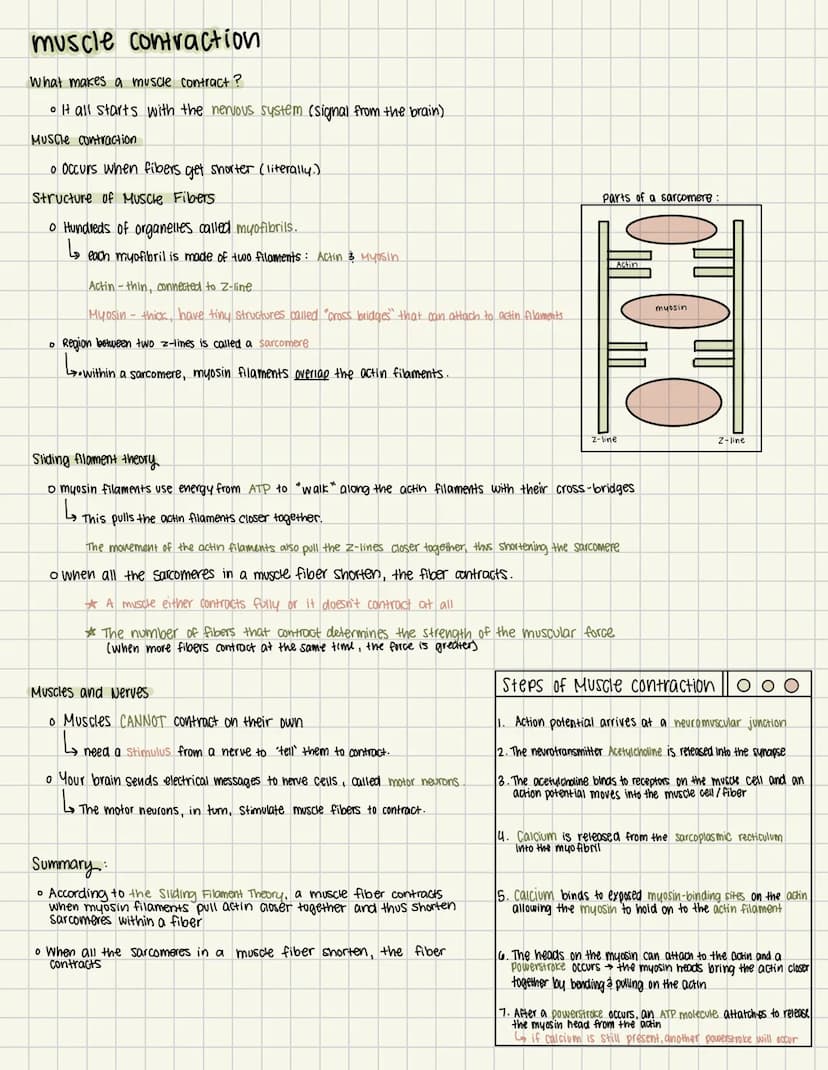 muscle contraction
What makes a muscle contract?
It all starts with the nervous system (signal from the brain)
Muscle contraction
Occurs when fibers get shorter (literally.)
Structure of Muscle Fibers
Hundreds of organelles called myofibrils.
↳ each myofibril is made of two filaments: Actin & Myosin
Actin - thin, connected to Z-line
Myosin - thick, have tiny structures called "cross bridges" that can attach to actin filaments
Region between two z-lines is called a sarcomere
↳ • within a sarcomere, myosin filaments overlap the actin filaments.
Parts of a sarcomere:
Actin
myosin
Z-line
Z-line
Sliding filament theory
myosin filaments use energy from ATP to "walk" along the actin filaments with their cross-bridges
↳ This pulls the actin filaments closer together.
The movement of the actin filaments also pull the z-lines closer together, thus shortening the sarcomere
When all the sarcomeres in a muscle fiber shorten, the fiber contracts.
★ A muscle either contracts fully or it doesn't contract at all
★ The number of fibers that contract determines the strength of the muscular force
(when more fibers contract at the same time, the force is greater)
Muscles and Nerves
Muscles CANNOT contract on their own
↳ need a stimulus from a nerve to 'tell' them to contract.
Your brain sends electrical messages to nerve cells, called motor neurons.
↳ The motor neurons, in turn, stimulate muscle fibers to contract.
Summary:
According to the Sliding Filament Theory, a muscle fiber contracts
when myosin filaments pull actin closer together and thus shorten
sarcomeres within a fiber
When all the sarcomeres in a muscle fiber shorten, the fiber
contracts
Steps of Muscle contraction
1. Action potential arrives at a neuromuscular junction
2. The neurotransmitter Acetylcholine is released into the synapse
3. The acetylcholine binds to receptors on the muscle cell and an
action potential moves into the muscle cell/fiber
4. Calcium is released from the sarcoplasmic recticulum
into the myofibril
5. Calcium binds to exposed myosin-binding sites on the actin
allowing the myosin to hold on to the actin filament
6. The heads on the myosin can attach to the actin and a
powerstroke occurs → the myosin heads bring the actin closer
together by bending & pulling on the actin
7. After a powerstroke occurs, an ATP molecule attatches to release
the myosin head from the actin
↳ if calcium is still present, another powerstroke will occur